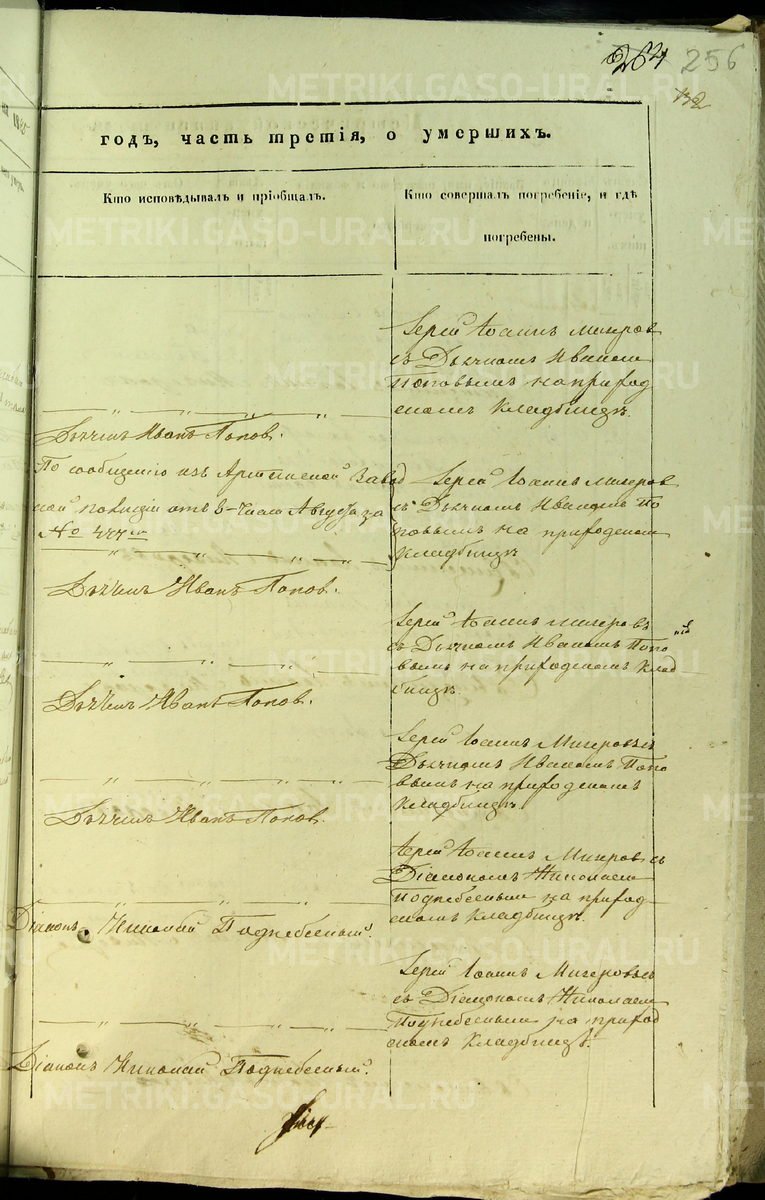 264 256
132
METRIKI.GASO-URAL.RU
годъ, часть третія, о умершихъ.
Кто исповѣдывалъ и пріобщалъ.
Кто совершалъ погребеніе, и гдѣ
погребены.
Іерей Іоаннъ Мизеров
съ Дьячкомъ Иваномъ
Поповымъ на приход
скомъ кладбищѣ.
Дьячекъ Иванъ Попов.
По сообщенію изъ Артинской Завод
ской полиціи отъ 6 числа Августа за
№ 477
Іерей Іоаннъ Мизеров
съ Дьячкомъ Иваномъ По
повымъ на приходскомъ
кладбищѣ
Дьячекъ Иванъ Попов.
Іерей Іоаннъ Мизеровъ
съ Дьячкомъ Иваномъ Попо
вымъ на приходскомъ клад
бищѣ.
Дьячекъ Иванъ Попов.
Іерей Іоаннъ Мизеровъ съ
Дьячкомъ Иваномъ Попо
вымъ на приходскомъ
кладбищѣ.
Дьячекъ Иванъ Попов.
Іерей Іоаннъ Мизеров съ
Діакономъ Николаем
Поднебесным на приход
скомъ кладбищѣ.
Діаконъ Николай Поднебесный.
Іерей Іоаннъ Мизеровъ
съ Діакономъ Николаем
Поднебесным на приход
скомъ кладбищѣ.
Діаконъ Николай Поднебесный.